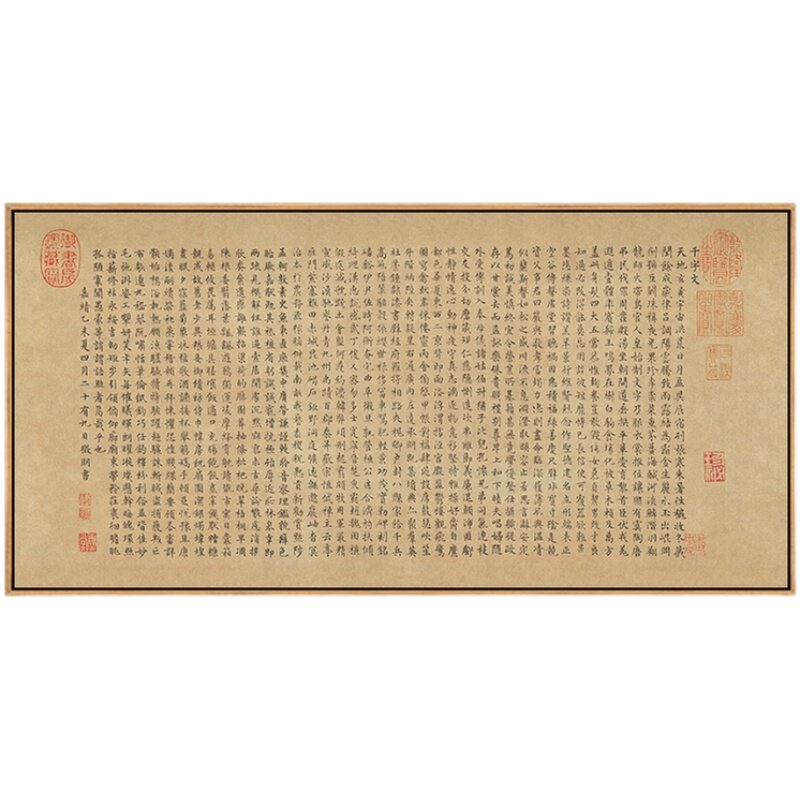 千字文
天地玄黃宇宙洪荒日月盈昃辰宿列張寒來暑往秋收冬藏
閏餘成歲律呂調陽雲騰致雨露結為霜金生麗水玉出崐岡
劍號巨闕珠稱夜光果珍李柰菜重芥薑海鹹河淡鱗潛羽翔
龍師火帝鳥官人皇始制文字乃服衣裳推位讓國有虞陶唐
弔民伐罪周發殷湯坐朝問道垂拱平章愛育黎首臣伏戎羌
遐邇壹體率賓歸王鳴鳳在樹白駒食場化被草木賴及萬方
蓋此身髮四大五常恭惟鞠養豈敢毀傷女慕貞絜男效才良
知過必改得能莫忘罔談彼短靡恃己長信使可覆器欲難量
墨悲絲染詩讚羔羊景行維賢克念作聖德建名立形端表正
空谷傳聲虛堂習聽禍因惡積福緣善慶尺璧非寶寸陰是競
資父事君曰嚴與敬孝當竭力忠則盡命臨深履薄夙興溫凊
似蘭斯馨如松之盛川流不息淵澄取暎容止若思言辭安定
篤初誠美慎終宜令榮業所基籍甚無竟學優登仕攝職從政
存以甘棠去而益詠樂殊貴賤禮別尊卑上和下睦夫唱婦隨
外受傅訓入奉母儀諸姑伯叔猶子比兒孔懷兄弟同氣連枝
交友投分切磨箴規仁慈隱惻造次弗離節義廉退顛沛匪虧
性靜情逸心動神疲守真志滿逐物意移堅持雅操好爵自縻
都邑華夏東西二京背邙面洛浮渭據涇宮殿盤鬱樓觀飛驚
圖寫禽獸畫綵僊靈丙舍傍啟甲帳對楹肆筵設席鼓瑟吹笙
升階納陛弁轉疑星右通廣內左達承明既集墳典亦聚群英
杜稾鍾隸漆書壁經府羅將相路夾槐卿戶封八縣家給千兵
高冠陪輦驅轂振纓世祿侈富車駕肥輕策功茂實勒碑刻銘
磻谿伊尹佐時阿衡奄宅曲阜微旦孰營桓公匡合濟弱扶傾
綺迴漢惠說感武丁俊乂密勿多士寔寧晉楚更霸趙魏困橫
假途滅虢踐土會盟何遵約法韓弊煩刑起翦頗牧用軍最精
宣威沙漠馳譽丹青九州禹跡百郡秦并嶽宗恒岱禪主云亭
雁門紫塞雞田赤城昆池碣石鉅野洞庭曠遠緜邈巖岫杳冥
治本於農務茲稼穡俶載南畝我藝黍稷稅熟貢新勸賞黜陟
孟軻敦素史魚秉直庶幾中庸勞謙謹敕聆音察理鑑貌辨色
貽厥嘉猷勉其祗植省躬譏誡寵增抗極殆辱近恥林皋幸即
兩疏見機解組誰逼索居閒處沉默寂寥求古尋論散慮逍遙
欣奏累遣慼謝歡招渠荷的歷園莽抽條枇杷晚翠梧桐早凋
陳根委翳落葉飄颻遊鵾獨運凌摩絳霄耽讀翫市寓目囊箱
易輶攸畏屬耳垣牆具膳餐飯適口充腸飽飫烹宰飢厭糟糠
親戚故舊老少異糧妾御績紡侍巾帷房紈扇圓潔銀燭煒煌
晝眠夕寐藍筍象床絃歌酒讌接杯舉觴矯手頓足悅豫且康
嫡後嗣續祭祀蒸嘗稽顙再拜悚懼恐惶牋牒簡要顧答審詳
骸垢想浴執熱願涼驢騾犢特駭躍超驤誅斬賊盜捕獲叛亡
布射遼丸嵇琴阮嘯恬筆倫紙鈞巧任釣釋紛利俗並皆佳妙
毛施淑姿工顰妍笑年矢每催曦暉朗曜璇璣懸斡晦魄環照
指薪修祜永綏吉劭矩步引領俯仰廊廟束帶矜莊徘徊瞻眺
孤陋寡聞愚蒙等誚謂語助者焉哉乎也
嘉靖乙未夏四月二十有九日徵明書